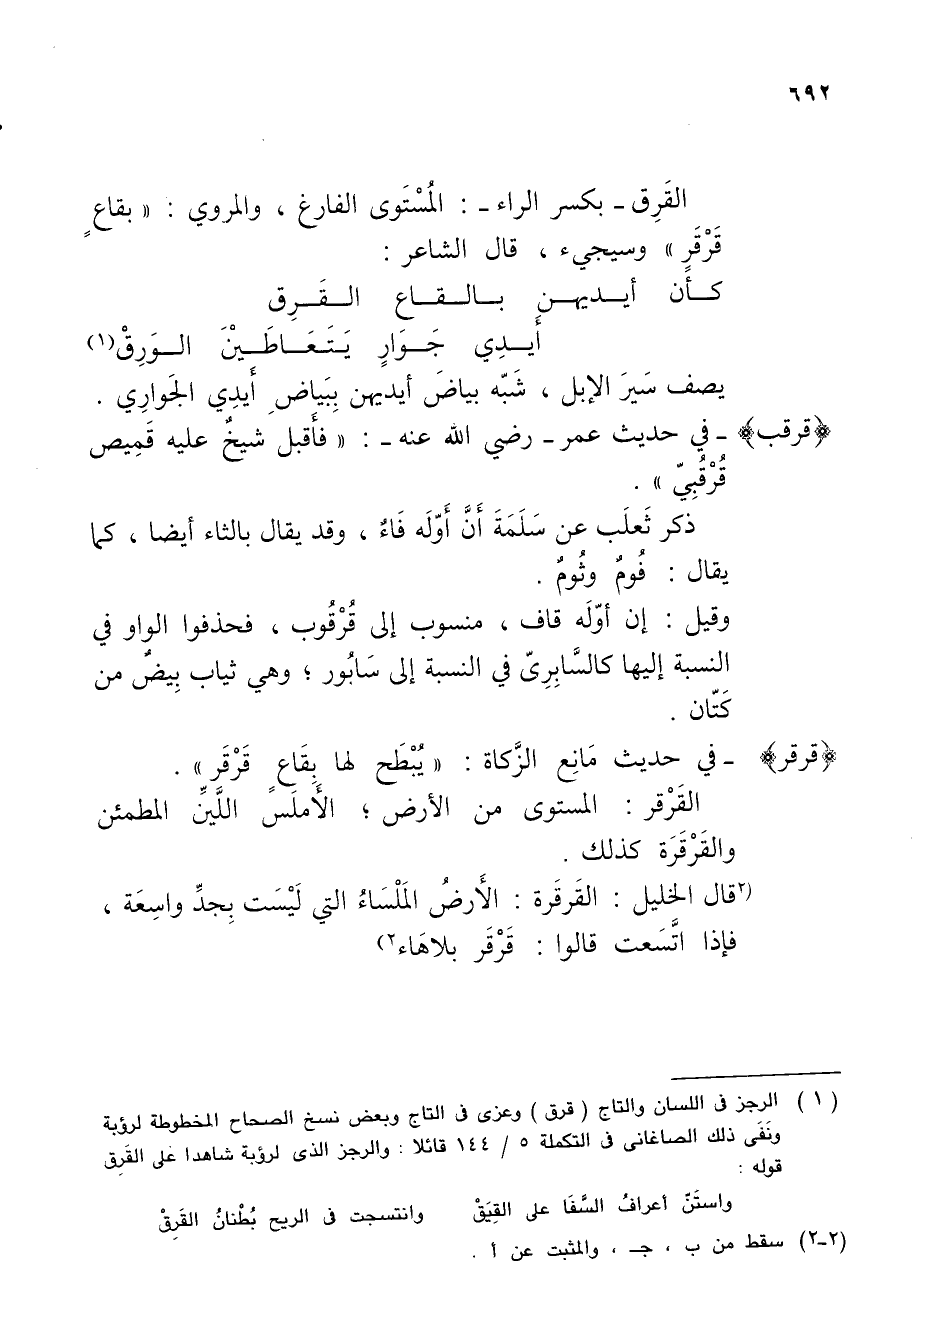 ٦٩٢
القَرِق ـ بكسر الراء ـ : المُسْتَوى الفارغ ، والمروي : « بقاعٍ
قَرْقَرٍ » وسيجيء ، قال الشاعر :
كــأن أيــديهــنٍ بــالــقــاع الــقَــرِق
أَيــدِي جَــوَارٍ يَــتَــعَــاطَــيْــنَ الــوَرِقْ(١)
يصف سَيرَ الإبل ، شَبّه بياضَ أيديهن بِبَياضِ أَيدِي الجَوارِي .
﴿قرقب﴾ ـ في حديث عمر ـ رضي الله عنه ـ : « فأَقبل شيخٌ عليه قَمِيص
قُرْقُبِيّ » .
ذكر ثَعلَب عن سَلَمَةَ أَنَّ أَوّلَه فَاءٌ ، وقد يقال بالثاء أيضا ، كما
يقال : فُومٌ وثُومٌ .
وقيل : إن أوّلَه قاف ، منسوب إلى قُرْقُوب ، فحذفوا الواو في
النسبة إليها كالسَّابِرِيّ في النسبة إلى سَابُور ؛ وهي ثياب بِيضٌ من
كَتّان .
﴿قرقر﴾ ـ في حديث مَانِع الزَّكاة : « يُبْطَح لها بِقَاعٍ قَرْقَر » .
القَرْقر : المستوى من الأرض ؛ الأَملَسُ اللَّيِّنُ المطمئن
والقَرْقَرَة كذلك .
(٢قال الخليل : القَرقَرة : الأَرضُ المَلْسَاءُ التي لَيْسَت بِجدِّ واسِعَة ،
فإذا اتَّسَعت قالوا : قَرْقَر بلاهَاء٢)
( ١ ) الرجز فى اللسان والتاج ( قرق ) وعزى فى التاج وبعض نسخ الصحاح المخطوطة لرؤبة
ونَفَى ذلك الصاغانى فى التكملة ٥ / ١٤٤ قائلا : والرجز الذى لرؤبة شاهدا على القَرِق
قوله :
واستَنّ أعرافُ السَّفَا على القِيَقْ وانتسجت فى الريح بُطْنانُ القَرِقْ
(٢-٢) سقط من ب ، جـ ، والمثبت عن أ .